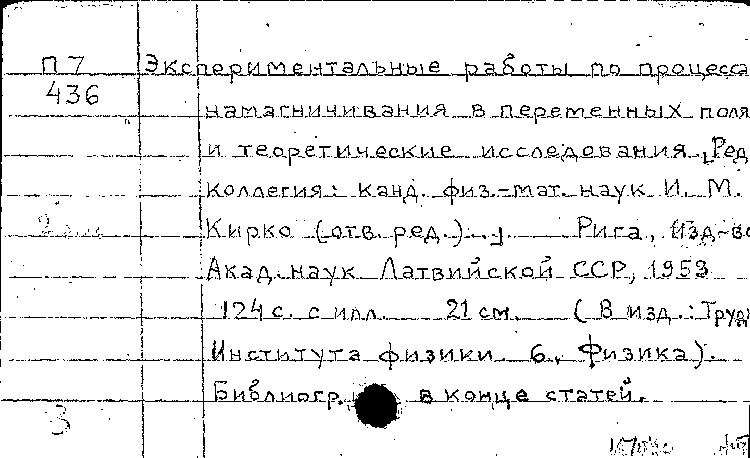 П7 Экспериментальные работы по процесса
436 намагничивания в переменных поля
и теоретические исследования. Ред
коллегия: канд. физ.-мат. наук И. М.
2 Кирко (отв. ред.). Рига, Изд-во
Акад. наук Латвийской ССР, 1959
124 с. с илл. 21 см. (В изд.: Труды
Института физики. 6, Физика).
Библиогр. в конце статей.
3